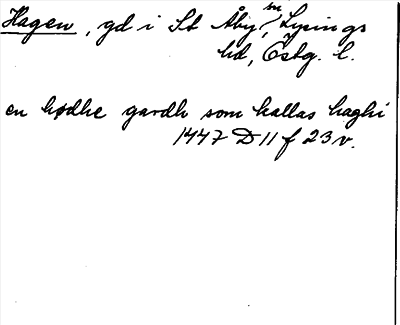 Hagen, gd i St Åby sn, Lysings
hd, Östg. l.
en ødhe gardh som kallas haghi
1447 D 11 f 23 v.